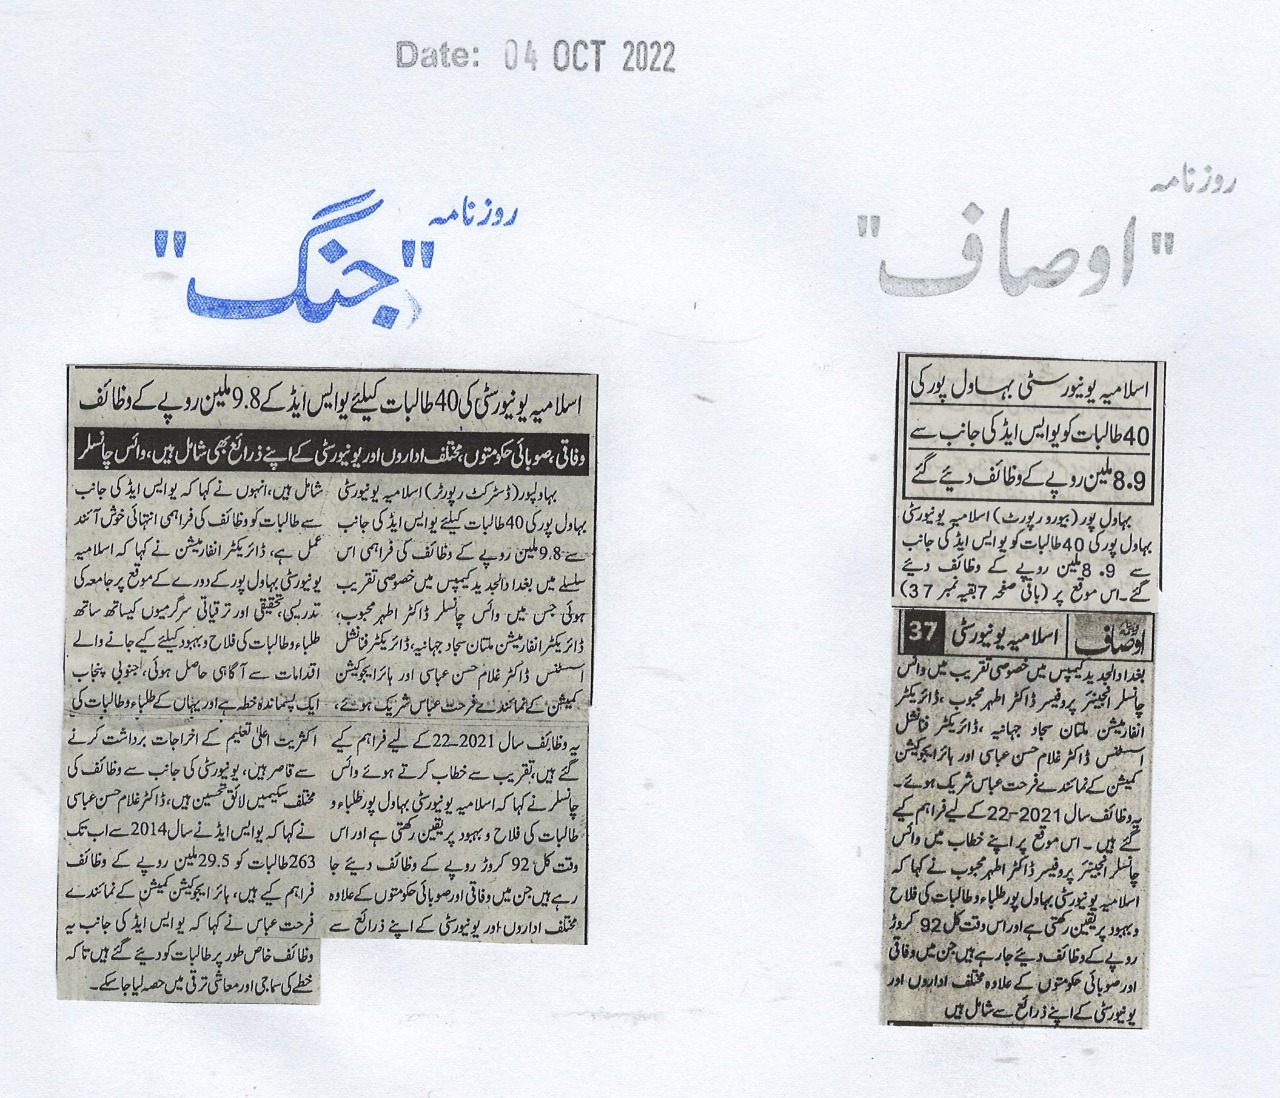 Date: 04 OCT 2022
روزنامہ
"جنگ"
اسلامیہ یونیورسٹی کی 40 طالبات کیلئے یو ایس ایڈ کے 9.8 ملین روپے کے وظائف
وفاقی، صوبائی حکومتوں، مختلف اداروں اور یونیورسٹی کے اپنے ذرائع بھی شامل ہیں، وائس چانسلر
بہاولپور (ڈسٹرکٹ رپورٹر) اسلامیہ یونیورسٹی
بہاول پور کی 40 طالبات کیلئے یو ایس ایڈ کی جانب
سے 9.8 ملین روپے کے وظائف کی فراہمی اس
سلسلے میں بغداد الجدید کیمپس میں خصوصی تقریب
ہوئی جس میں وائس چانسلر ڈاکٹر اطہر محبوب،
ڈائریکٹر انفارمیشن ملتان سجاد جہانیہ، ڈائریکٹر فنانشل
اسسٹنس ڈاکٹر غلام حسن عباسی اور ہائر ایجوکیشن
کمیشن کے نمائندے فرحت عباس شریک ہوئے،
یہ وظائف سال 2021-22 کے لیے فراہم کیے
گئے ہیں، تقریب سے خطاب کرتے ہوئے وائس
چانسلر نے کہا کہ اسلامیہ یونیورسٹی بہاول پور طلباء و
طالبات کی فلاح و بہبود پر یقین رکھتی ہے اور اس
وقت کل 92 کروڑ روپے کے وظائف دیئے جا
رہے ہیں جن میں وفاقی اور صوبائی حکومتوں کے علاوہ
مختلف اداروں اور یونیورسٹی کے اپنے ذرائع سے
شامل ہیں، انہوں نے کہا کہ یو ایس ایڈ کی جانب
سے طالبات کو وظائف کی فراہمی انتہائی خوش آئند
عمل ہے، ڈائریکٹر انفارمیشن نے کہا کہ اسلامیہ
یونیورسٹی بہاول پور کے دورے کے موقع پر جامعہ کی
تدریسی، تحقیقی اور ترقیاتی سرگرمیوں کیساتھ ساتھ
طلباء و طالبات کی فلاح و بہبود کیلئے کیے جانے والے
اقدامات سے آگاہی حاصل ہوئی، جنوبی پنجاب
ایک پسماندہ خطہ ہے اور یہاں کے طلباء و طالبات کی
اکثریت اعلیٰ تعلیم کے اخراجات برداشت کرنے
سے قاصر ہیں، یونیورسٹی کی جانب سے وظائف کی
مختلف سکیمیں لائق تحسین ہیں، ڈاکٹر غلام حسن عباسی
نے کہا کہ یو ایس ایڈ نے سال 2014 سے اب تک
263 طالبات کو 29.5 ملین روپے کے وظائف
فراہم کیے ہیں، ہائر ایجوکیشن کمیشن کے نمائندے
فرحت عباس نے کہا کہ یو ایس ایڈ کی جانب یہ
وظائف خاص طور پر طالبات کو دیئے گئے ہیں تا کہ
خطے کی سماجی اور معاشی ترقی میں حصہ لیا جا سکے۔
روزنامہ
"اوصاف"
اسلامیہ یونیورسٹی بہاول پور کی
40 طالبات کو یو ایس ایڈ کی جانب سے
8.9 ملین روپے کے وظائف دیئے گئے
بہاول پور (بیورو رپورٹ) اسلامیہ یونیورسٹی
بہاول پور کی 40 طالبات کو یو ایس ایڈ کی جانب
سے 8.9 ملین روپے کے وظائف دیئے
گئے۔ اس موقع پر (باقی صفحہ 7 بقیہ نمبر 37)
اوصاف اسلامیہ یونیورسٹی 37
بغداد الجدید کیمپس میں خصوصی تقریب میں وائس
چانسلر انجینئر پروفیسر ڈاکٹر اطہر محبوب، ڈائریکٹر
انفارمیشن ملتان سجاد جہانیہ، ڈائریکٹر فنانشل
اسسٹنس ڈاکٹر غلام حسن عباسی اور ہائر ایجوکیشن
کمیشن کے نمائندے فرحت عباس شریک ہوئے۔
یہ وظائف سال 2021-22 کے لیے فراہم کیے
گئے ہیں۔ اس موقع پر اپنے خطاب میں وائس
چانسلر انجینئر پروفیسر ڈاکٹر اطہر محبوب نے کہا کہ
اسلامیہ یونیورسٹی بہاول پور طلباء و طالبات کی فلاح
و بہبود پر یقین رکھتی ہے اور اس وقت کل 92 کروڑ
روپے کے وظائف دیئے جا رہے ہیں جن میں وفاقی
اور صوبائی حکومتوں کے علاوہ مختلف اداروں اور
یونیورسٹی کے اپنے ذرائع سے شامل ہیں